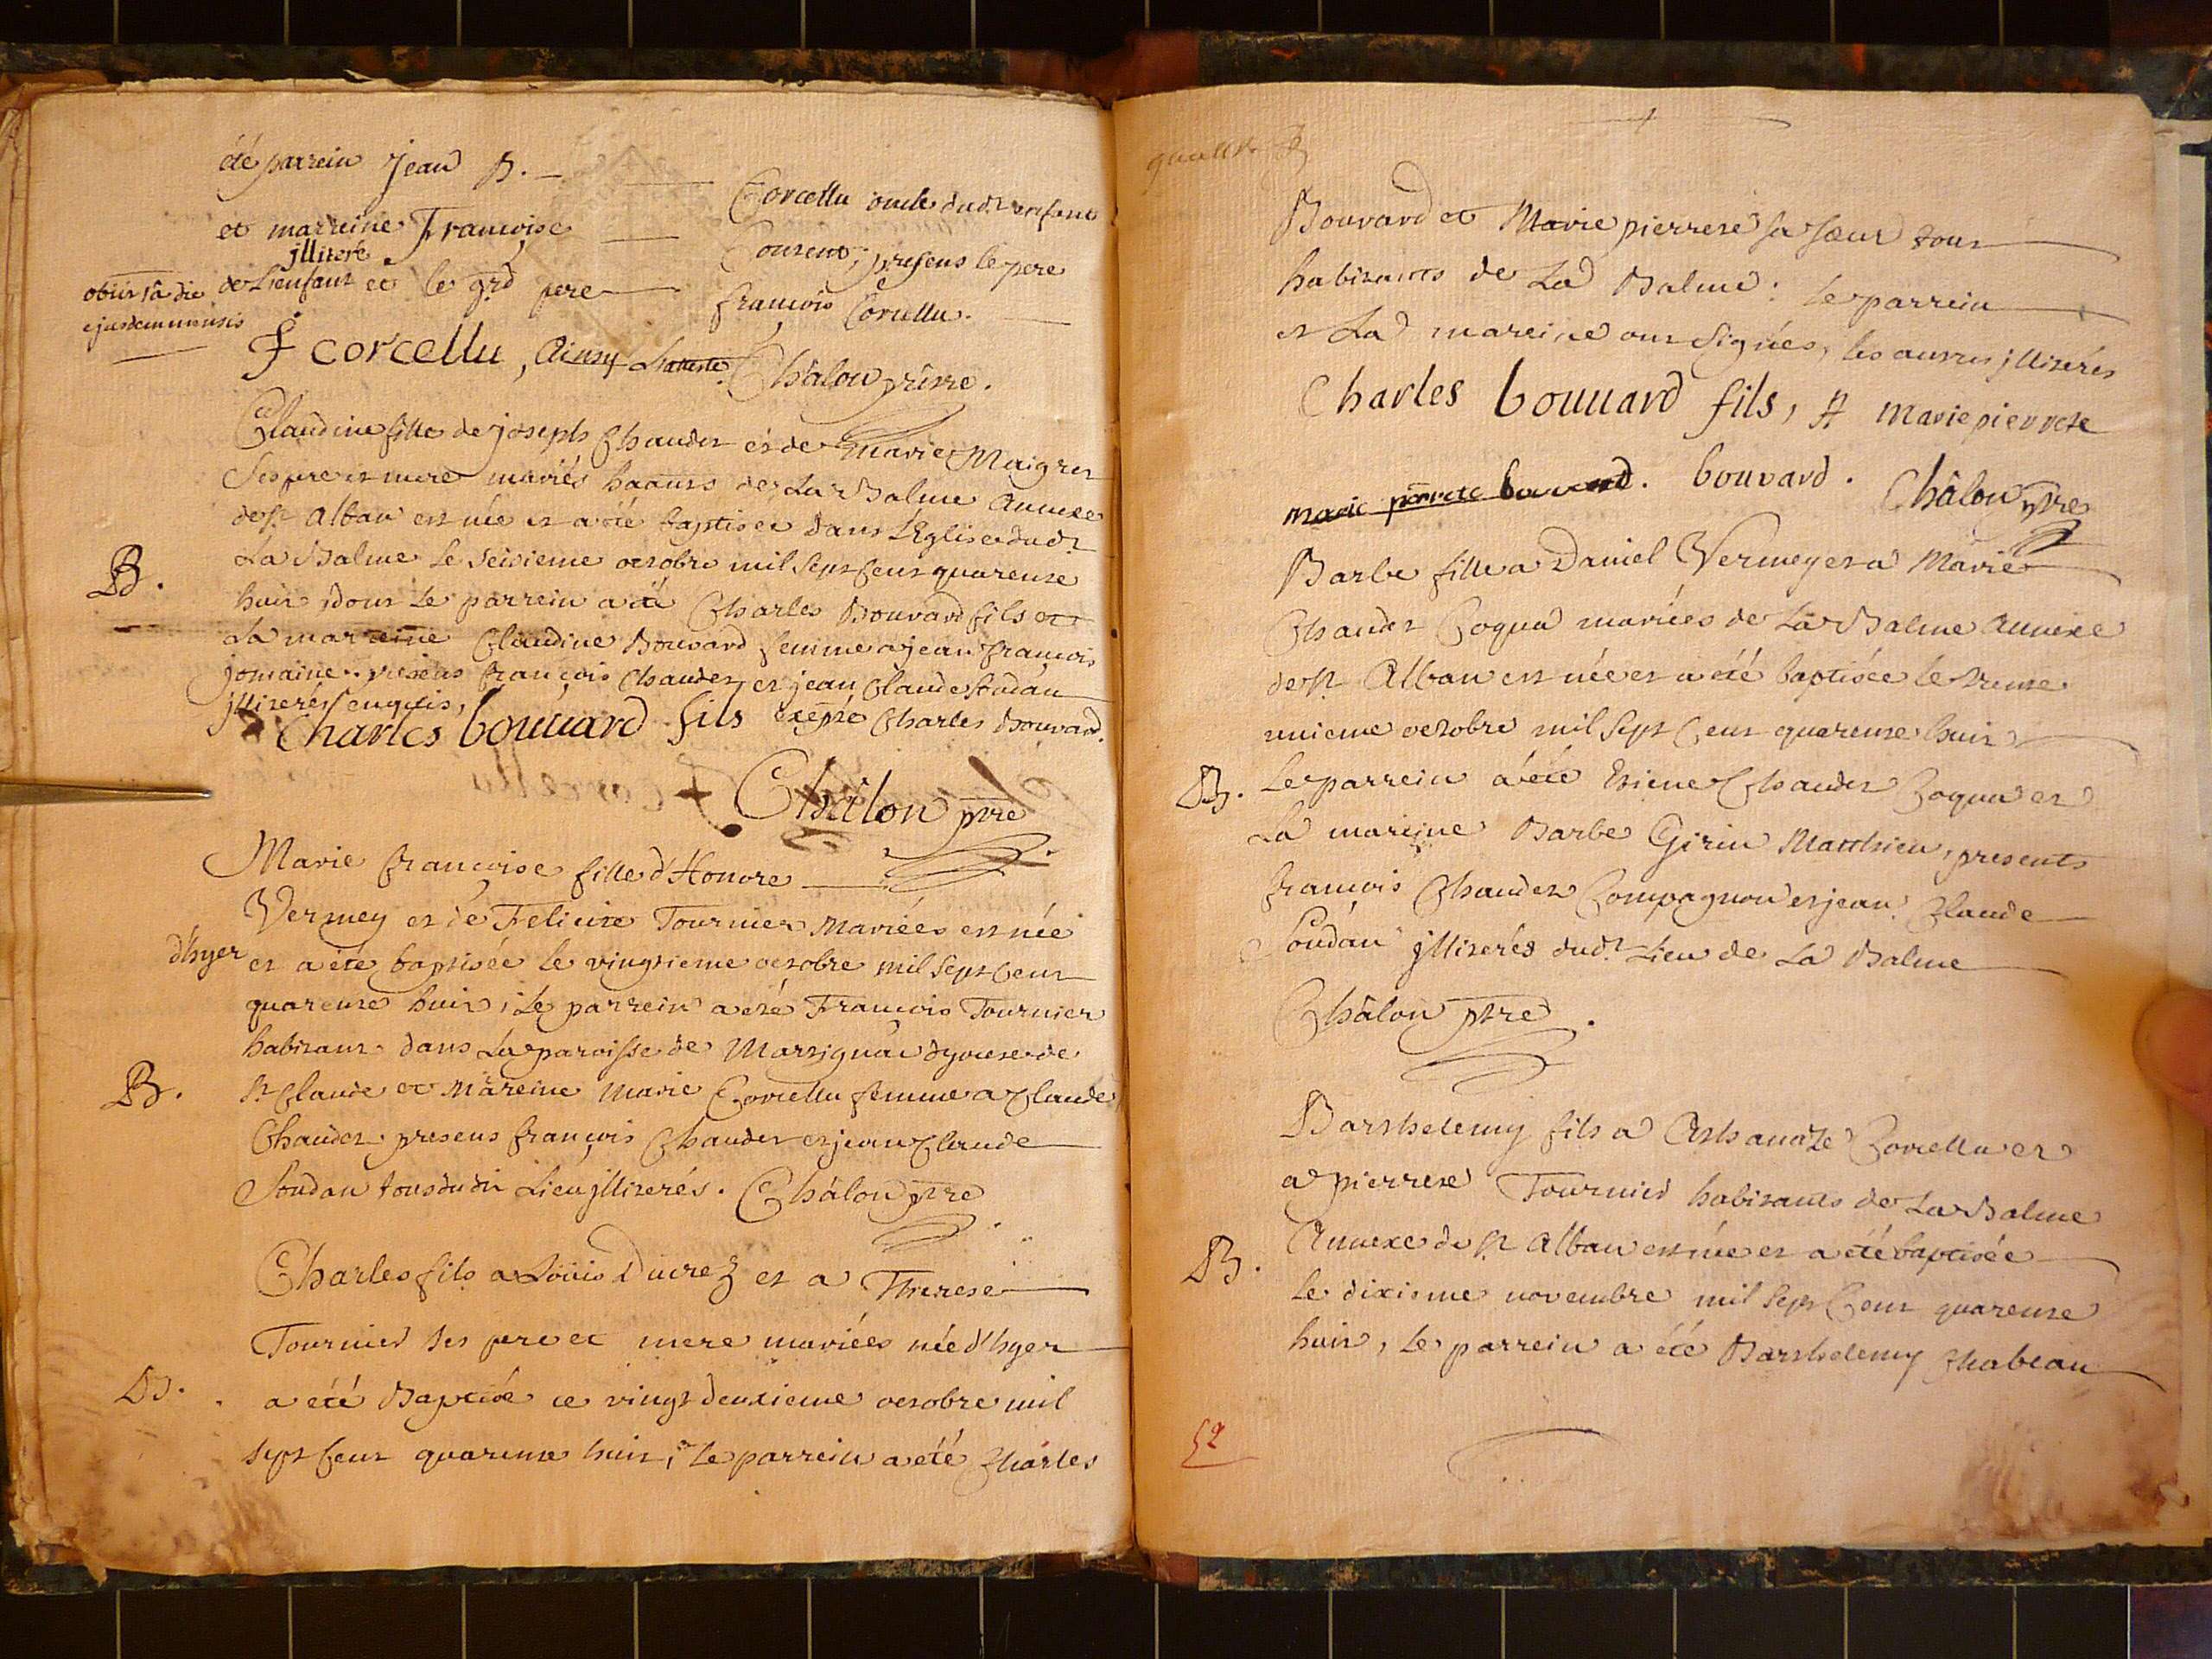 été parrein jean B. — Corcellu oncle dud.t enfant
et marreine Françoise — Courent; presens le pere
jlliteré
de Lienfant et le grd pere — francois Corcellu.
obiit 1â die
ejusdem mensis
F corcellu, Ainsy L'atteste Châlon prêtre.
Claudine fille de joseph Chaudet et de Marie Maigret
Ses pere et mere mariés haânts de La Balme Annexe
de St Alban est née et a été baptisée dans L'Eglise dud.t
La Balme Le Seisieme octobre mil Sept Cent quarente
B.
huit, dont Le parrein a été Charles Bouvard fils et
La marreine Claudine Bouvard femme a jean francois
jomaine.. presens françois Chaudet et jean Claude Soudán
jlliterés enquis,
Charles bouuard fils exepté Charles Bouvard.
Châlon ptre
Marie francoise fille d'Honore
Vermey et de Felicite Tournier Mariées est née
d'hyer
et a été baptisée le vingtieme octobre mil Sept Cent
quarente huit, Le parrein a eté François Tournier
habitant dans La paroisse de Martignác dyocese de
B.
St Claude et Mâreine Marie Corcellu femme a Claude
Chaudet. presens françois Chaudet et jean Claude
Soudan tous dudit Lieu jlliterés. Châlon ptre
Charles fils a Loüis Ducrez et a Therese
Tournier Ses pere et mere mariées née d'hyer
B.
a été Baptisé ce vingt deuxieme octobre mil
Sept Cent quarente huit, Le parrein a été Charles
Bouvard et Marie pierrete sa sœur tous
habitants de La Balme: le parrein
et La mareine ont signées, les autres jlliterés
Charles bouuard fils, & Marie pierrete
marie pierrete bouvard. bouvard. Châlon ptre
Barbe fille a Daniel Vermey et a Marie
Chaudet Coqua mariées de La Balme Annexe
de St Alban est née et a été baptisée le trente
unieme octobre mil Sept Cent quarente huit
B.
Le parrein a été Etiene Chaudet Coqua et
La mareine Barbe Girin Matthieu, presents
francois Chaudet Compagnon et jean Claude
Soudán jlliterés dud.t Lieu de La Balme
Châlon ptre.
Barthelemy fils a Athanaze Corcellu et
a pierrete Tournier habitants de La Balme
Annexe de St Alban est née et a été baptisée
B.
le dixieme novembre mil Sept Cent quarente
huit, Le parrein a été Barthelemy Chabeau
52